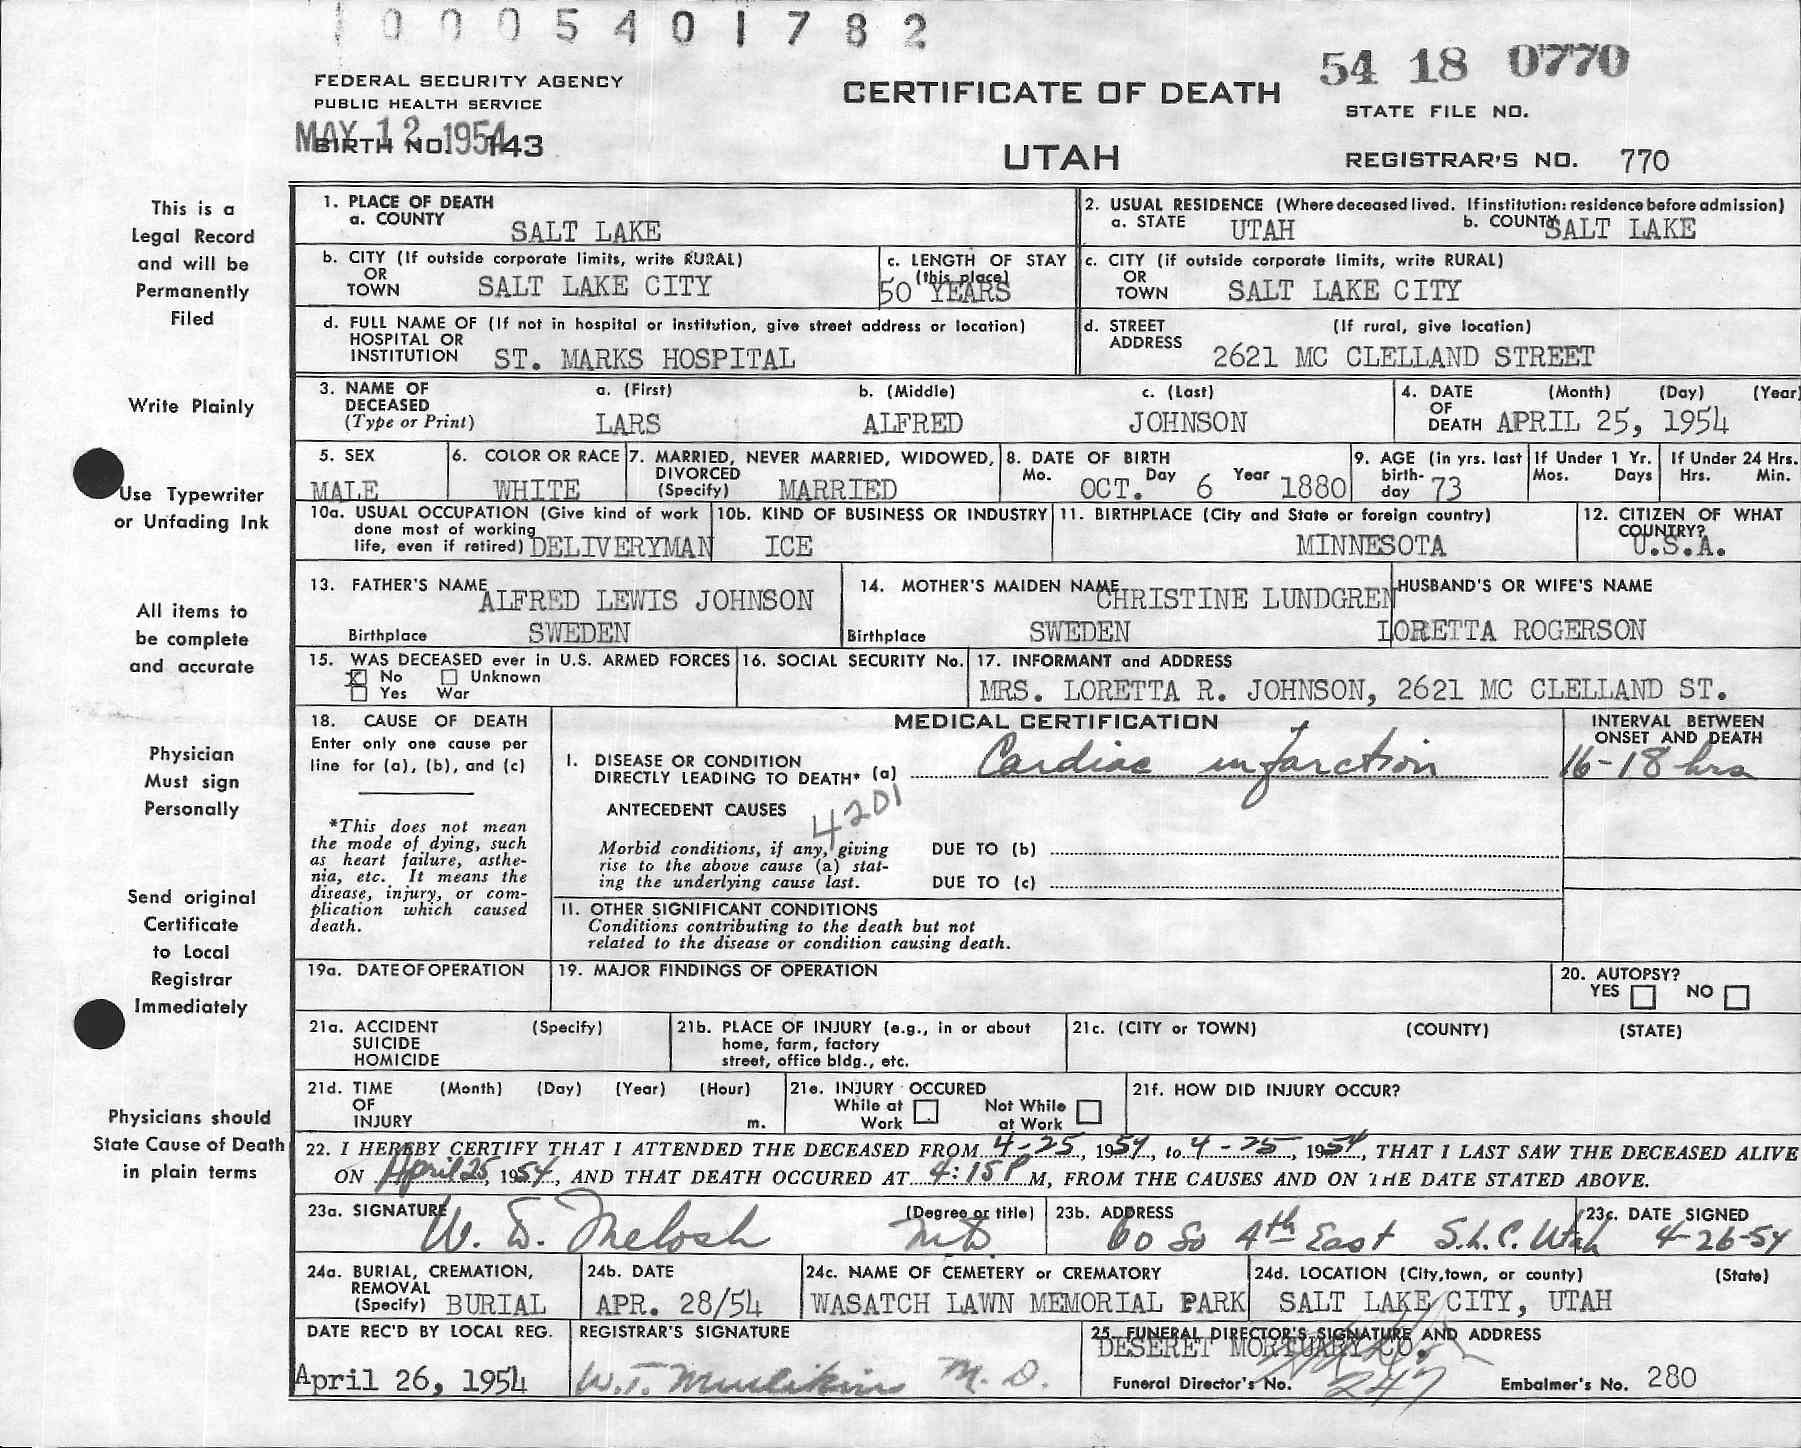 1 0 0 0 5 4 0 1 7 8 2
FEDERAL SECURITY AGENCY
PUBLIC HEALTH SERVICE
MAY 12 1954
BIRTH NO. 143
CERTIFICATE OF DEATH
UTAH
54 18 0770
STATE FILE NO.
REGISTRAR'S NO. 770
This is a
Legal Record
and will be
Permanently
Filed
Write Plainly
Use Typewriter
or Unfading Ink
All items to
be complete
and accurate
Physician
Must sign
Personally
Send original
Certificate
to Local
Registrar
Immediately
Physicians should
State Cause of Death
in plain terms
1. PLACE OF DEATH
a. COUNTY SALT LAKE
2. USUAL RESIDENCE (Where deceased lived. If institution: residence before admission)
a. STATE UTAH b. COUNTY SALT LAKE
b. CITY (If outside corporate limits, write RURAL)
OR
TOWN SALT LAKE CITY
c. LENGTH OF STAY
(this place)
50 YEARS
c. CITY (if outside corporate limits, write RURAL)
OR
TOWN SALT LAKE CITY
d. FULL NAME OF (If not in hospital or institution, give street address or location)
HOSPITAL OR
INSTITUTION ST. MARKS HOSPITAL
d. STREET (If rural, give location)
ADDRESS 2621 MC CLELLAND STREET
3. NAME OF
DECEASED
(Type or Print)
a. (First) b. (Middle) c. (Last)
LARS ALFRED JOHNSON
4. DATE (Month) (Day) (Year)
OF
DEATH APRIL 25, 1954
5. SEX
MALE
6. COLOR OR RACE
WHITE
7. MARRIED, NEVER MARRIED, WIDOWED,
DIVORCED
(Specify) MARRIED
8. DATE OF BIRTH
Mo. OCT. Day 6 Year 1880
9. AGE (in yrs. last
birth-
day 73
If Under 1 Yr.
Mos. Days
If Under 24 Hrs.
Hrs. Min.
10a. USUAL OCCUPATION (Give kind of work
done most of working
life, even if retired) DELIVERYMAN
10b. KIND OF BUSINESS OR INDUSTRY
ICE
11. BIRTHPLACE (City and State or foreign country)
MINNESOTA
12. CITIZEN OF WHAT
COUNTRY?
U.S.A.
13. FATHER'S NAME ALFRED LEWIS JOHNSON
Birthplace SWEDEN
14. MOTHER'S MAIDEN NAME CHRISTINE LUNDGREN
Birthplace SWEDEN
HUSBAND'S OR WIFE'S NAME
LORETTA ROGERSON
15. WAS DECEASED ever in U.S. ARMED FORCES
X No Unknown
Yes War
16. SOCIAL SECURITY No.
17. INFORMANT and ADDRESS
MRS. LORETTA R. JOHNSON, 2621 MC CLELLAND ST.
18. CAUSE OF DEATH
Enter only one cause per
line for (a), (b), and (c)
*This does not mean
the mode of dying, such
as heart failure, asthe-
nia, etc. It means the
disease, injury, or com-
plication which caused
death.
MEDICAL CERTIFICATION
INTERVAL BETWEEN
ONSET AND DEATH
I. DISEASE OR CONDITION
DIRECTLY LEADING TO DEATH* (a) Cardiac infarction 16-18 hrs
ANTECEDENT CAUSES
4201
Morbid conditions, if any, giving
rise to the above cause (a) stat-
ing the underlying cause last.
DUE TO (b)
DUE TO (c)
II. OTHER SIGNIFICANT CONDITIONS
Conditions contributing to the death but not
related to the disease or condition causing death.
19a. DATE OF OPERATION
19. MAJOR FINDINGS OF OPERATION
20. AUTOPSY?
YES NO
21a. ACCIDENT (Specify)
SUICIDE
HOMICIDE
21b. PLACE OF INJURY (e.g., in or about
home, farm, factory
street, office bldg., etc.
21c. (CITY or TOWN) (COUNTY) (STATE)
21d. TIME (Month) (Day) (Year) (Hour)
OF
INJURY m.
21e. INJURY OCCURED
While at Work
Not While at Work
21f. HOW DID INJURY OCCUR?
22. I HEREBY CERTIFY THAT I ATTENDED THE DECEASED FROM 4-25, 1954, to 4-25, 1954, THAT I LAST SAW THE DECEASED ALIVE
ON April 25, 1954, AND THAT DEATH OCCURED AT 4:15 P M, FROM THE CAUSES AND ON THE DATE STATED ABOVE.
23a. SIGNATURE (Degree or title)
W. D. Melosh MD
23b. ADDRESS
60 So 4th East S.L.C. Utah
23c. DATE SIGNED
4-26-54
24a. BURIAL, CREMATION,
REMOVAL
(Specify) BURIAL
24b. DATE
APR. 28/54
24c. NAME OF CEMETERY or CREMATORY
WASATCH LAWN MEMORIAL PARK
24d. LOCATION (City, town, or county) (State)
SALT LAKE CITY, UTAH
DATE REC'D BY LOCAL REG.
April 26, 1954
REGISTRAR'S SIGNATURE
W.T. M. D.
25. FUNERAL DIRECTOR'S SIGNATURE AND ADDRESS
DESERET MORTUARY CO.
Funeral Director's No. 247
Embalmer's No. 280